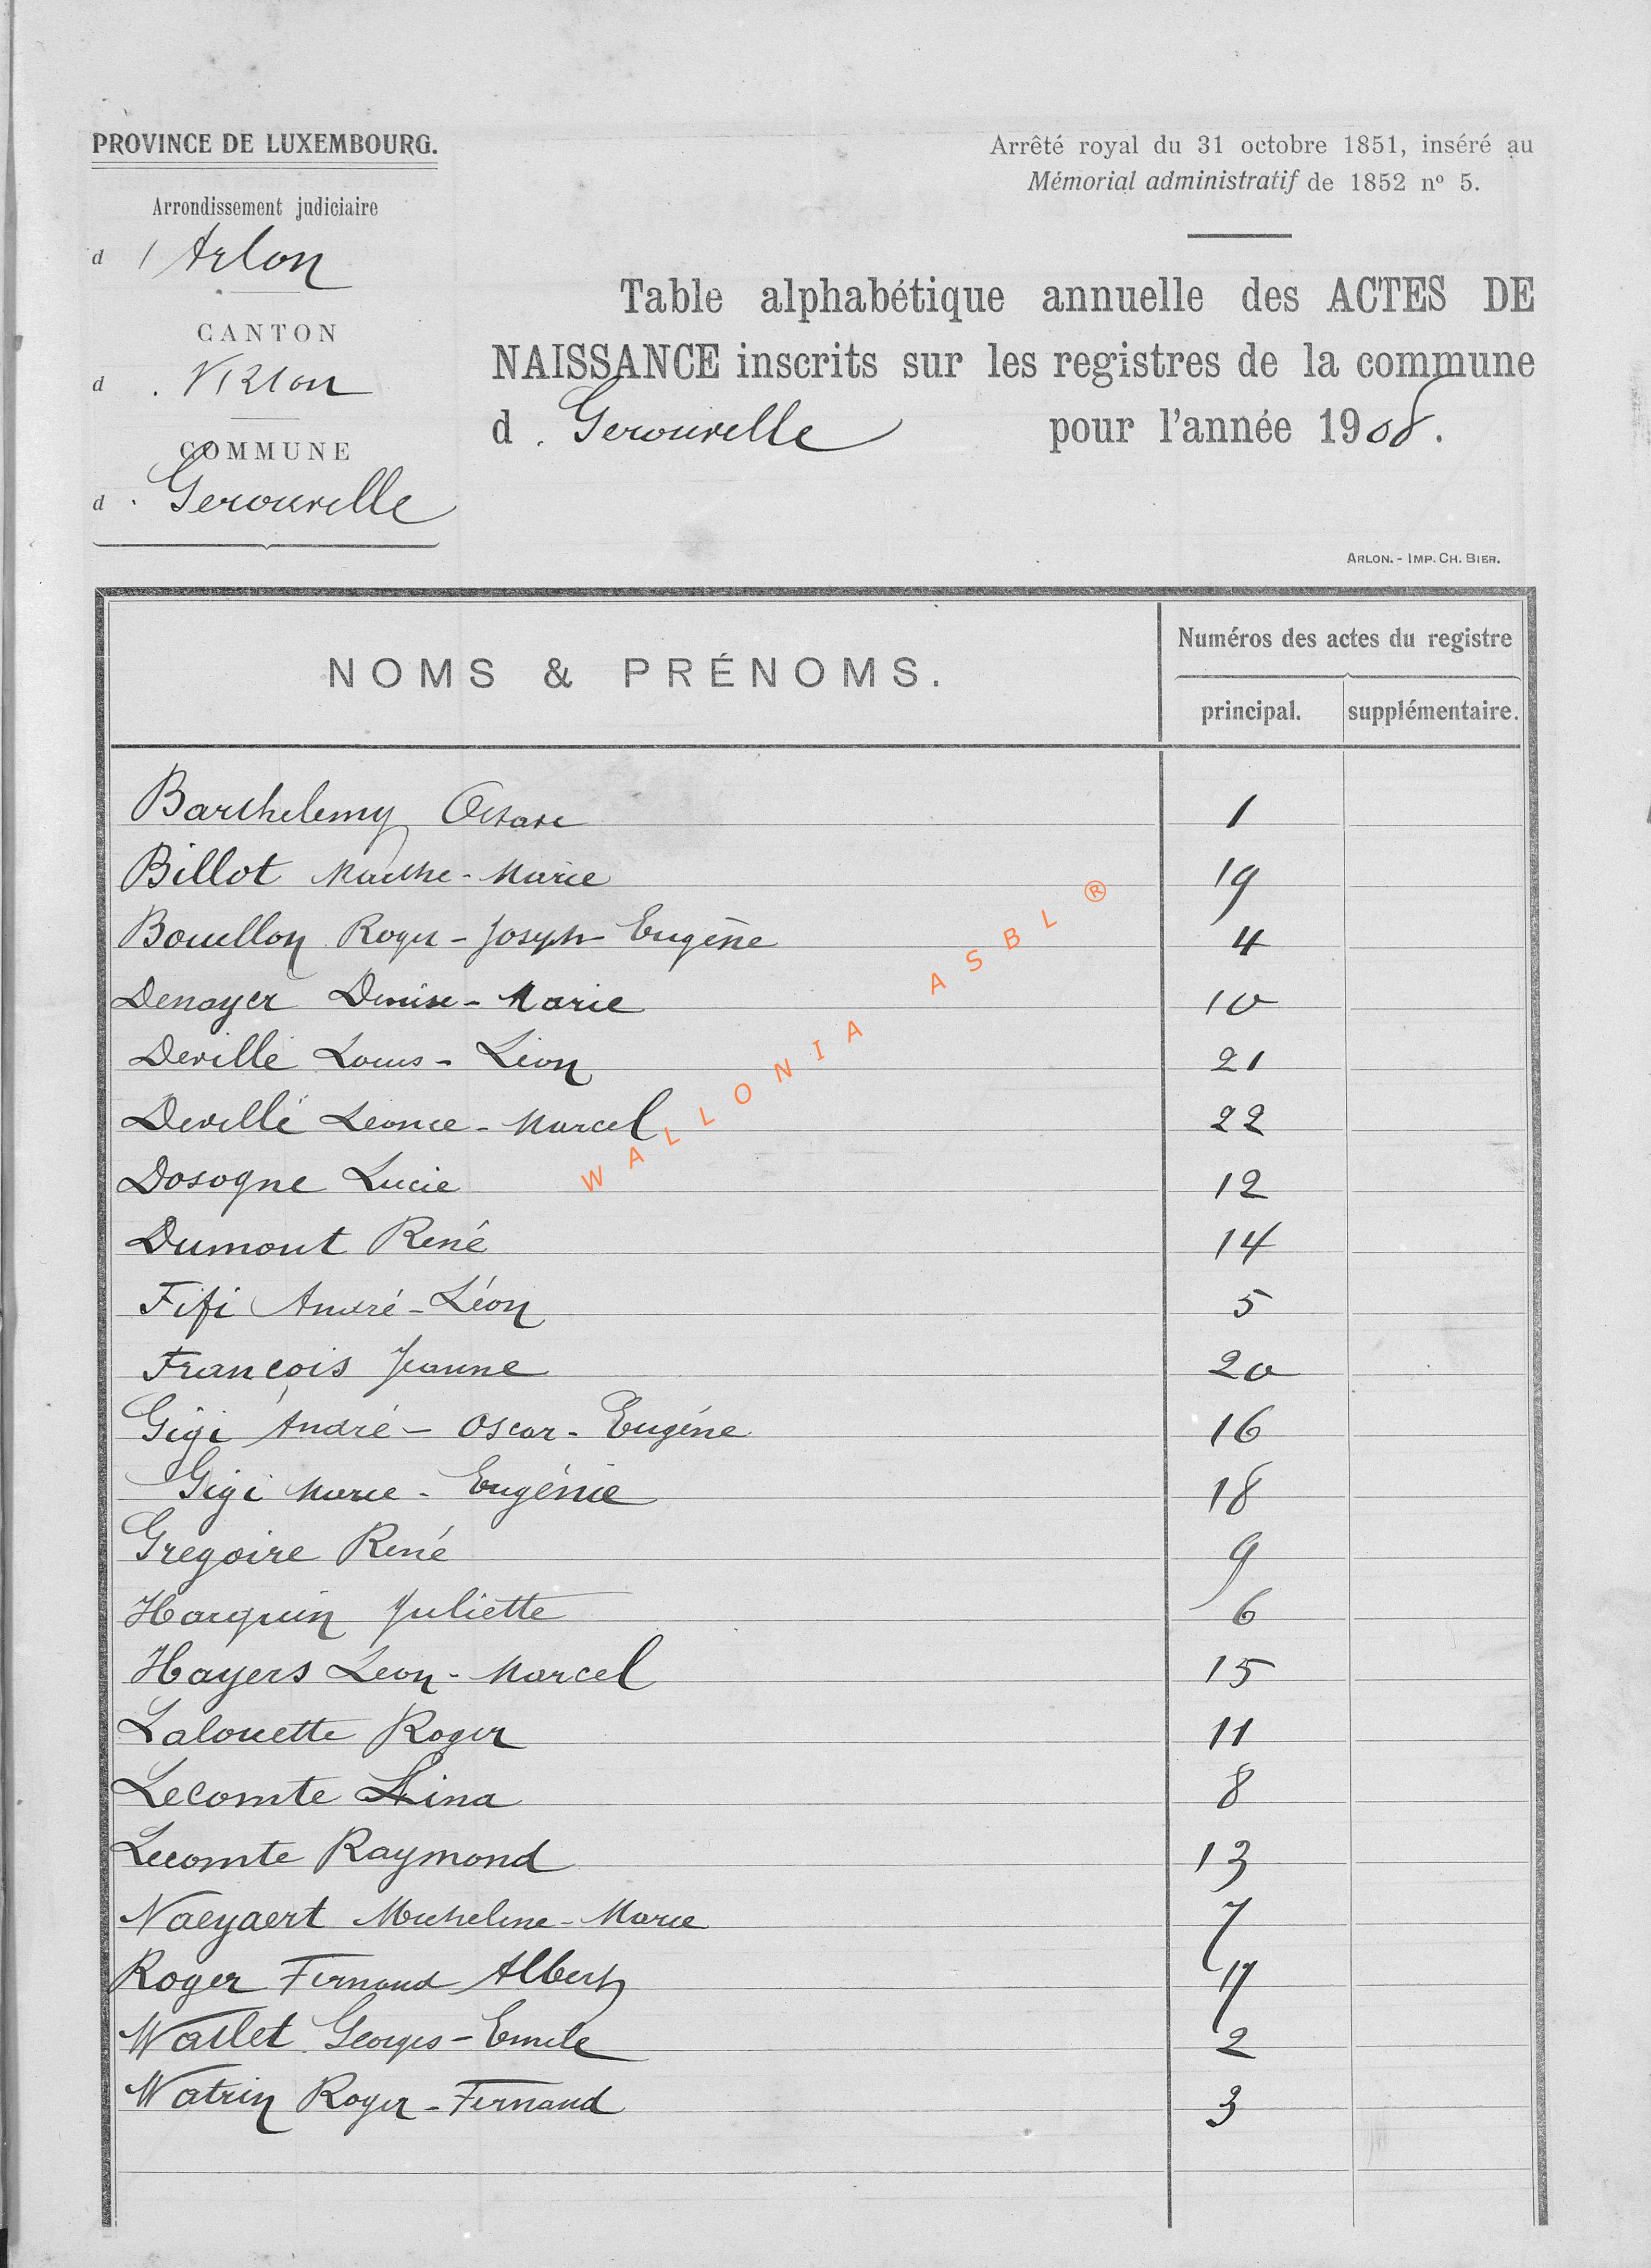 PROVINCE DE LUXEMBOURG.
Arrondissement judiciaire
d'Arlon
CANTON
d . Virton
COMMUNE
d . Gerouville
Arrêté royal du 31 octobre 1851, inséré au
Mémorial administratif de 1852 nº 5.
Table alphabétique annuelle des ACTES DE
NAISSANCE inscrits sur les registres de la commune
d . Gerouville pour l'année 1908.
ARLON. - IMP. CH. BIER.
NOMS & PRÉNOMS.
Numéros des actes du registre
principal. supplémentaire.
Barthelemy 1
Billot Marthe-Marie 19
Bouillon Roger-Joseph-Eugène 4
Denoyer Denise-Marie 10
Devillé Louis-Léon 21
Devillé Léonce-Marcel 22
Dosogne Lucie 12
Dumont René 14
Fifi André-Léon 5
François Jeanne 20
Gigi André-Oscar-Eugéne 16
Gigi Marie-Eugénie 18
Gregoire René 9
Harquin Juliette 6
Hayers Leon-Marcel 15
Lalouette Roger 11
Lecomte Lina 8
Lecomte Raymond 13
Naeyaert Micheline-Marie 7
Roger Fernand Albert 17
Watlet Georges-Emile 2
Watrin Roger-Fernand 3
WALLONIA ASBL ®